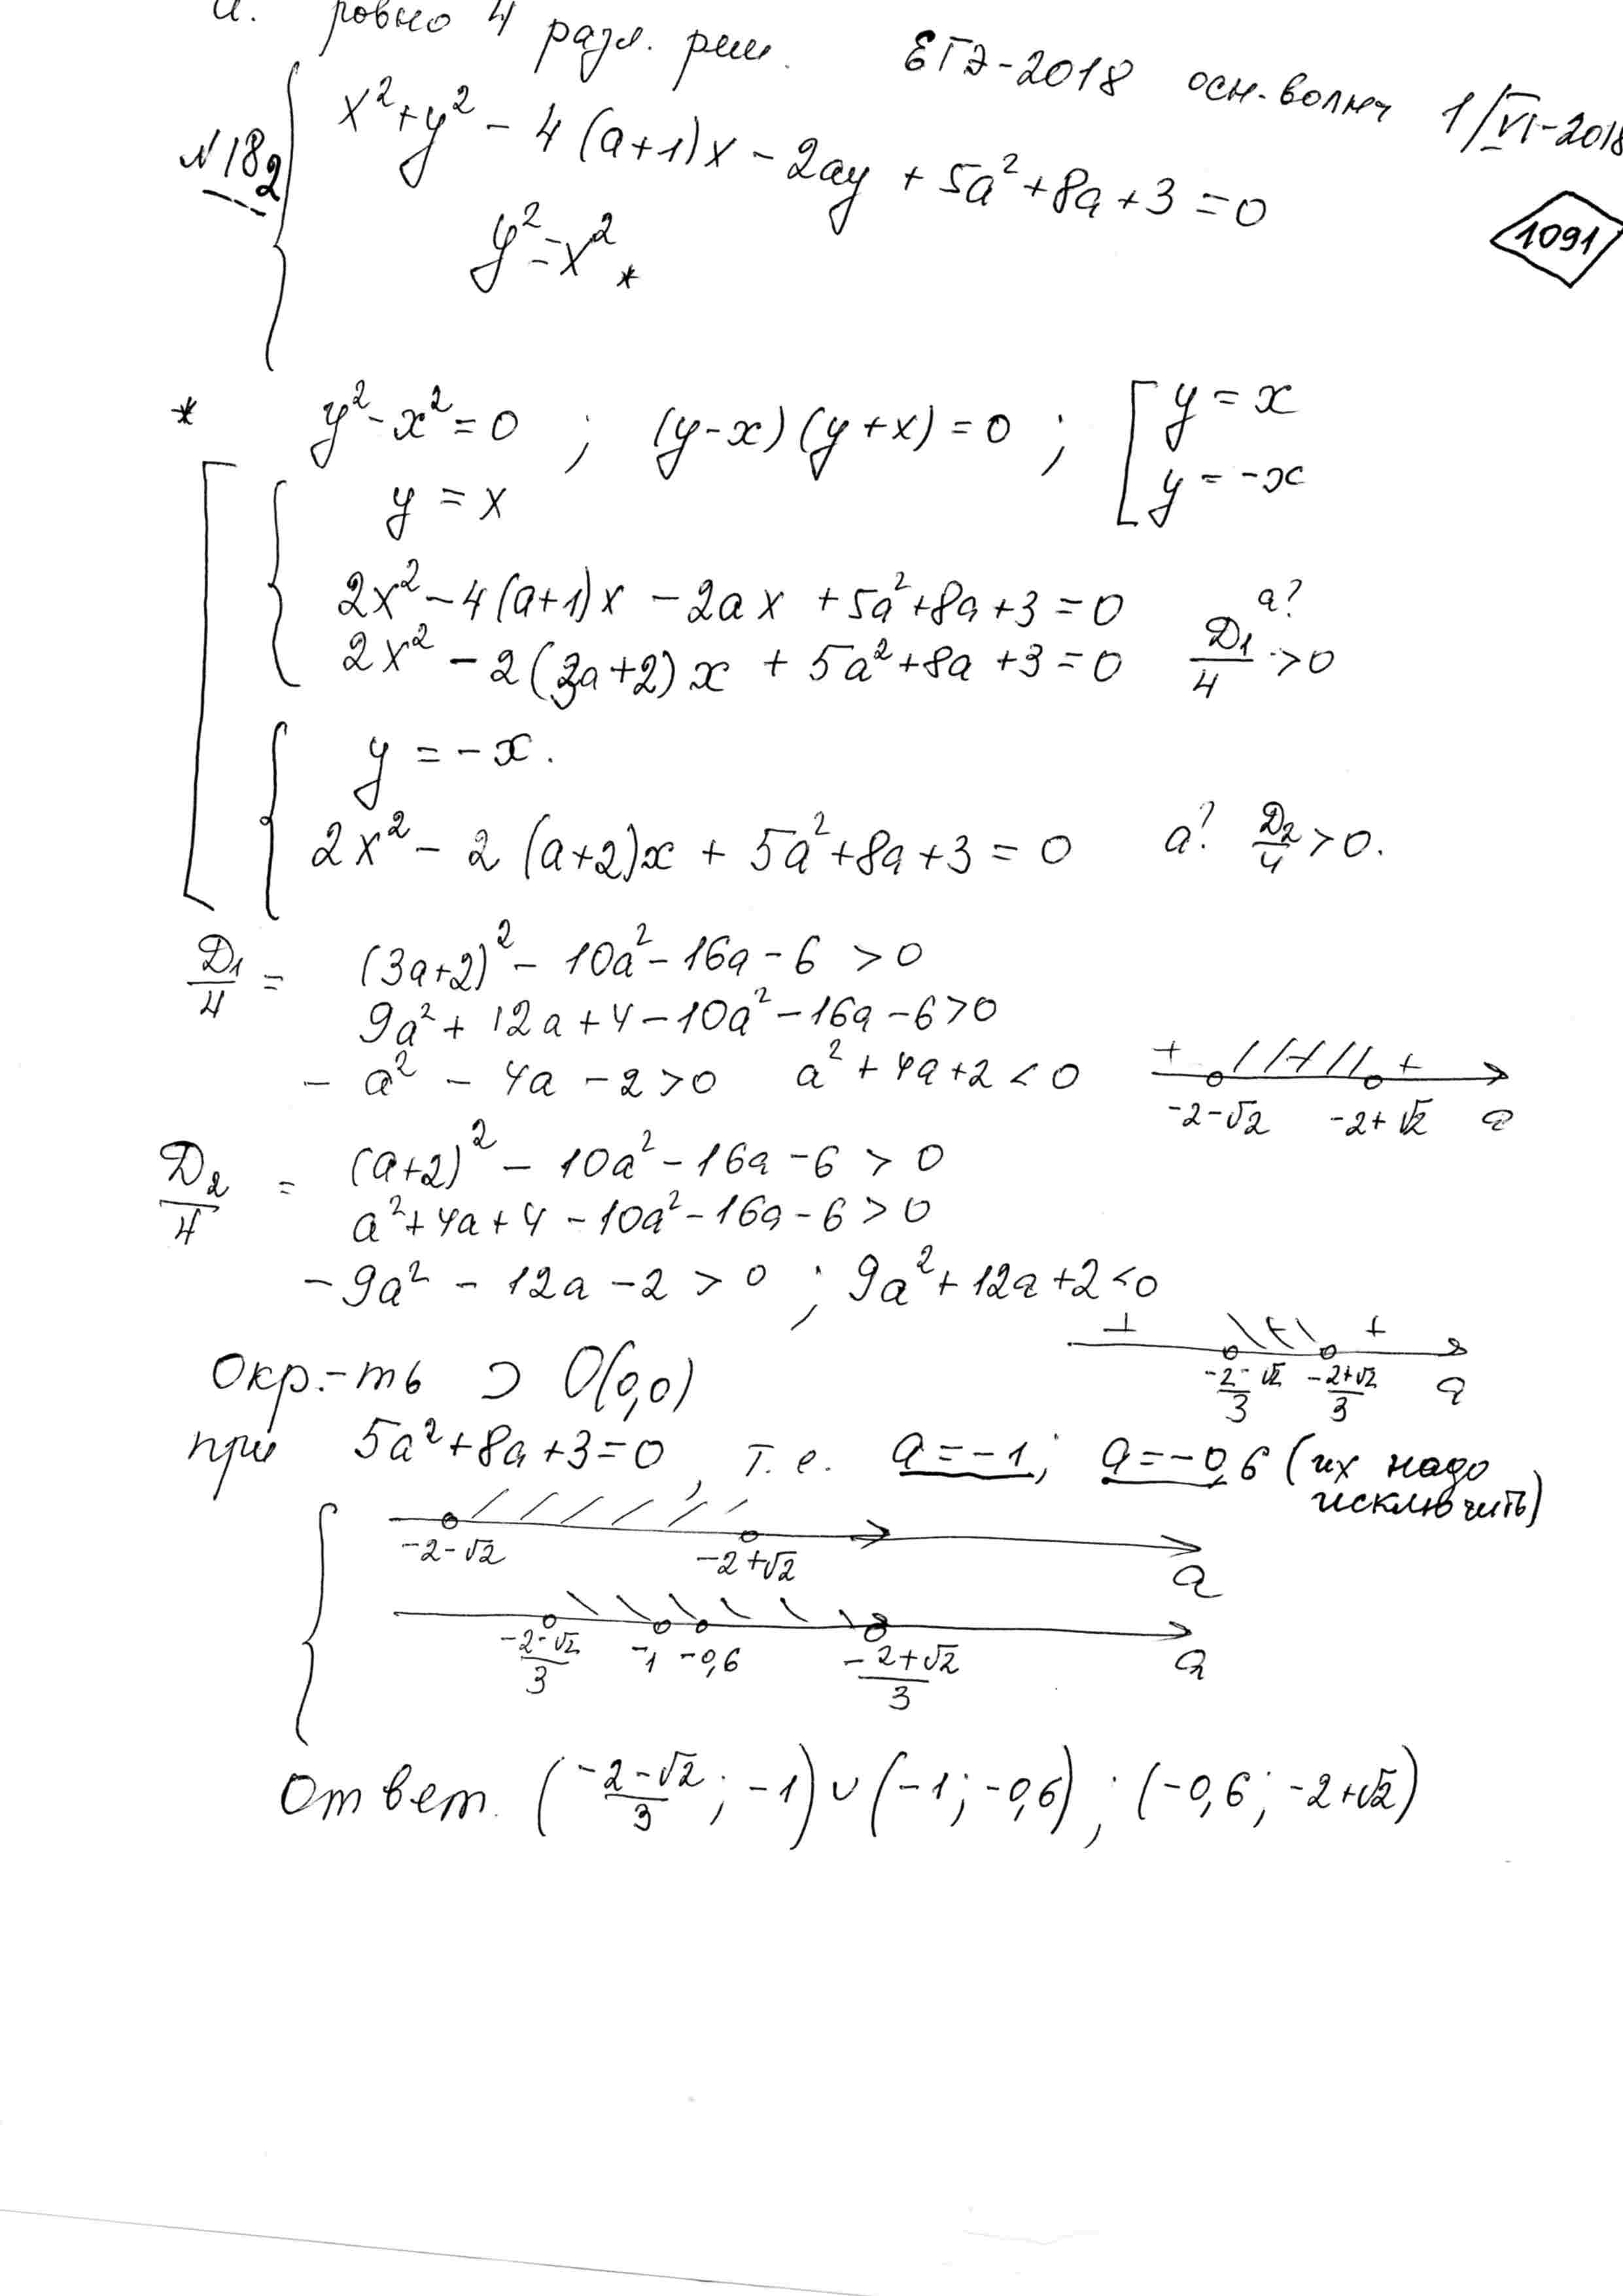 и. ровно 4 разл. реш.
ЕГЭ-2018 осн. волна 1/VI-2018
№18₂
x² + y² - 4(a+1)x - 2ay + 5a² + 8a + 3 = 0
1091
y² = x² *
* y² - x² = 0 ; (y-x)(y+x) = 0 ; [ y = x
y = -x
y = x
2x² - 4(a+1)x - 2ax + 5a² + 8a + 3 = 0 a?
2x² - 2(3a+2)x + 5a² + 8a + 3 = 0 Д₁/4 > 0
y = -x.
2x² - 2(a+2)x + 5a² + 8a + 3 = 0 a? Д₂/4 > 0.
Д₁/4 = (3a+2)² - 10a² - 16a - 6 > 0
9a² + 12a + 4 - 10a² - 16a - 6 > 0
- a² - 4a - 2 > 0 a² + 4a + 2 < 0 + +
-2-√2 -2+√2 a
Д₂/4 = (a+2)² - 10a² - 16a - 6 > 0
a² + 4a + 4 - 10a² - 16a - 6 > 0
- 9a² - 12a - 2 > 0 ; 9a² + 12a + 2 < 0
+ +
(-2-√2)/3 (-2+√2)/3 a
Окр.-ть ⊃ O(0,0)
при 5a² + 8a + 3 = 0, т.е. a = -1; a = -0,6 (их надо
исключить)
-2-√2 -2+√2 a
(-2-√2)/3 -1 -0,6 (-2+√2)/3 a
Ответ. ((-2-√2)/3 ; -1) ∪ (-1; -0,6) ; (-0,6; -2+√2)